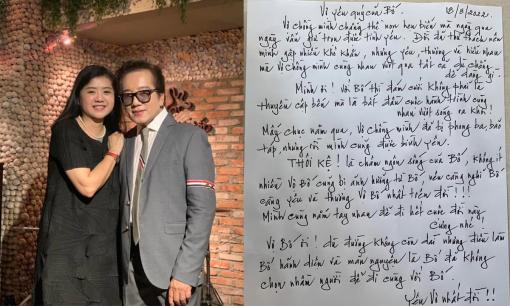 Vì yêu quý của Bố. 18/8/2022.
Vì chồng mình chẳng thề non hẹn biển mà ngày qua
ngày vẫn giữ trọn được tình yêu. Đời dù thử thách nên
mình gặp nhiều khó khăn, nhưng yêu thương và hiểu nhau
mà Vì chồng mình cùng nhau vượt qua tất cả dễ chẳng
dễ dàng gì.
Mình ơi! Với Bố thì đám cưới không phải là
thuyền cập bến mà là bắt đầu cuộc hành trình cùng
nhau vượt sóng ra khơi!
Mấy chục năm qua, Vì chồng mình đã bị phong ba, bão
táp, nhưng rồi mình cũng được bình yên.
THÔI KỆ! là châm ngôn sống của Bố, không ít
nhiều Vì Bố cũng bị ảnh hưởng từ Bố, nên càng nghĩ Bố
càng yêu và thương Vì Bố nhất trên đời!!!
Mình cùng nắm tay nhau để đi hết cuộc đời này
cùng nhé
Vì Bố ơi! dù đừng không còn dài nhưng điều làm
Bố hãnh diện và mãn nguyện là Bố đã không
chọn nhầm người để đi cùng với Bố.
Yêu Vì nhất đời!!